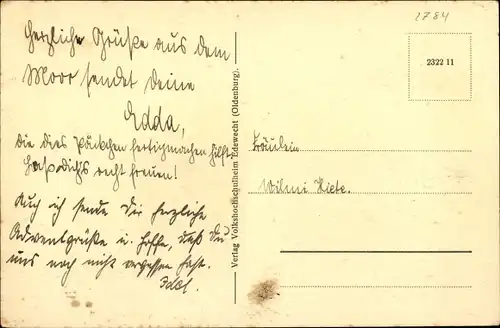 2784
2322 11
Herzliche Grüße aus dem
Moor sendet Deine
Edda,
die dies Päckchen fertigmachen hilft.
recht freuen!
Auch ich sende Dir herzliche
Adventgrüße u. hoffe, daß Du
uns noch nicht vergessen hast.
Verlag Volkshochschulheim Edewecht (Oldenburg).
Fräulein
Wilmi